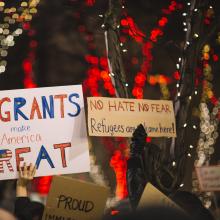 GRANTS
make
America
EAT
NO HATE NO FEAR
Refugees are welcome here!
PROUD